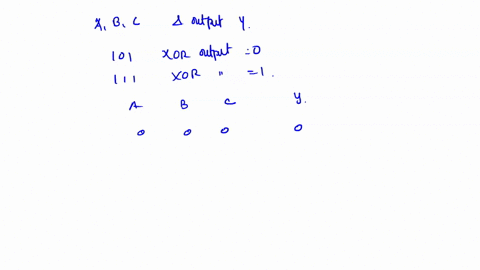 A, B, C & output Y.
101 XOR output =0
111 XOR " =1.
A B C Y.
0 0 0 0